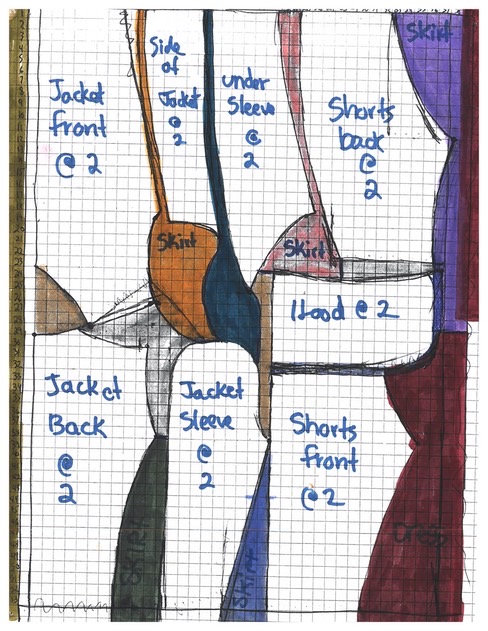 Skirt
Side
of
Jacket
@
2
Jacket
front
@ 2
under
Sleeve
@
2
Shorts
back
@
2
Skirt
Skirt
Hood @ 2
Jacket
Back
@
2
Jacket
Sleeve
@
2
Shorts
front
@ 2
Skirt
Skirt
Dress